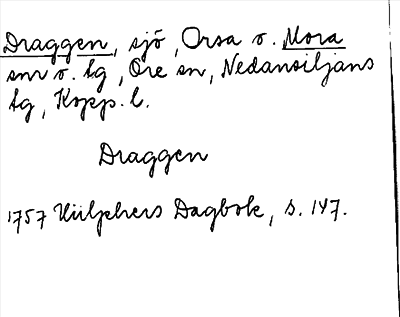 Draggen, sjö, Orsa o. Mora
snr o. tg, Ore sn, Nedansiljans
tg, Kopp. l.
Draggen
1757 Hülphers Dagbok, s. 147.